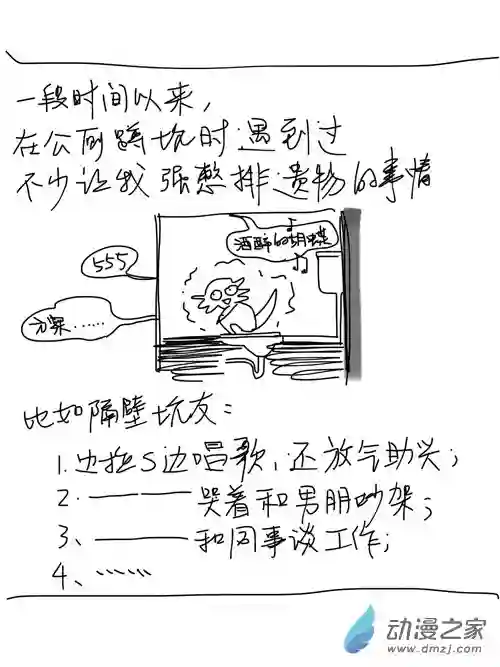 一段时间以来,
在公厕蹲坑时遇到过
不少让我强憋排遗物的事情
酒醉的蝴蝶
555
方案……
比如隔壁坑友:
1.边拉S边唱歌,还放气助兴;
2.———哭着和男朋吵架;
3、———和同事谈工作;
4、……
动漫之家
www.dmzj.com